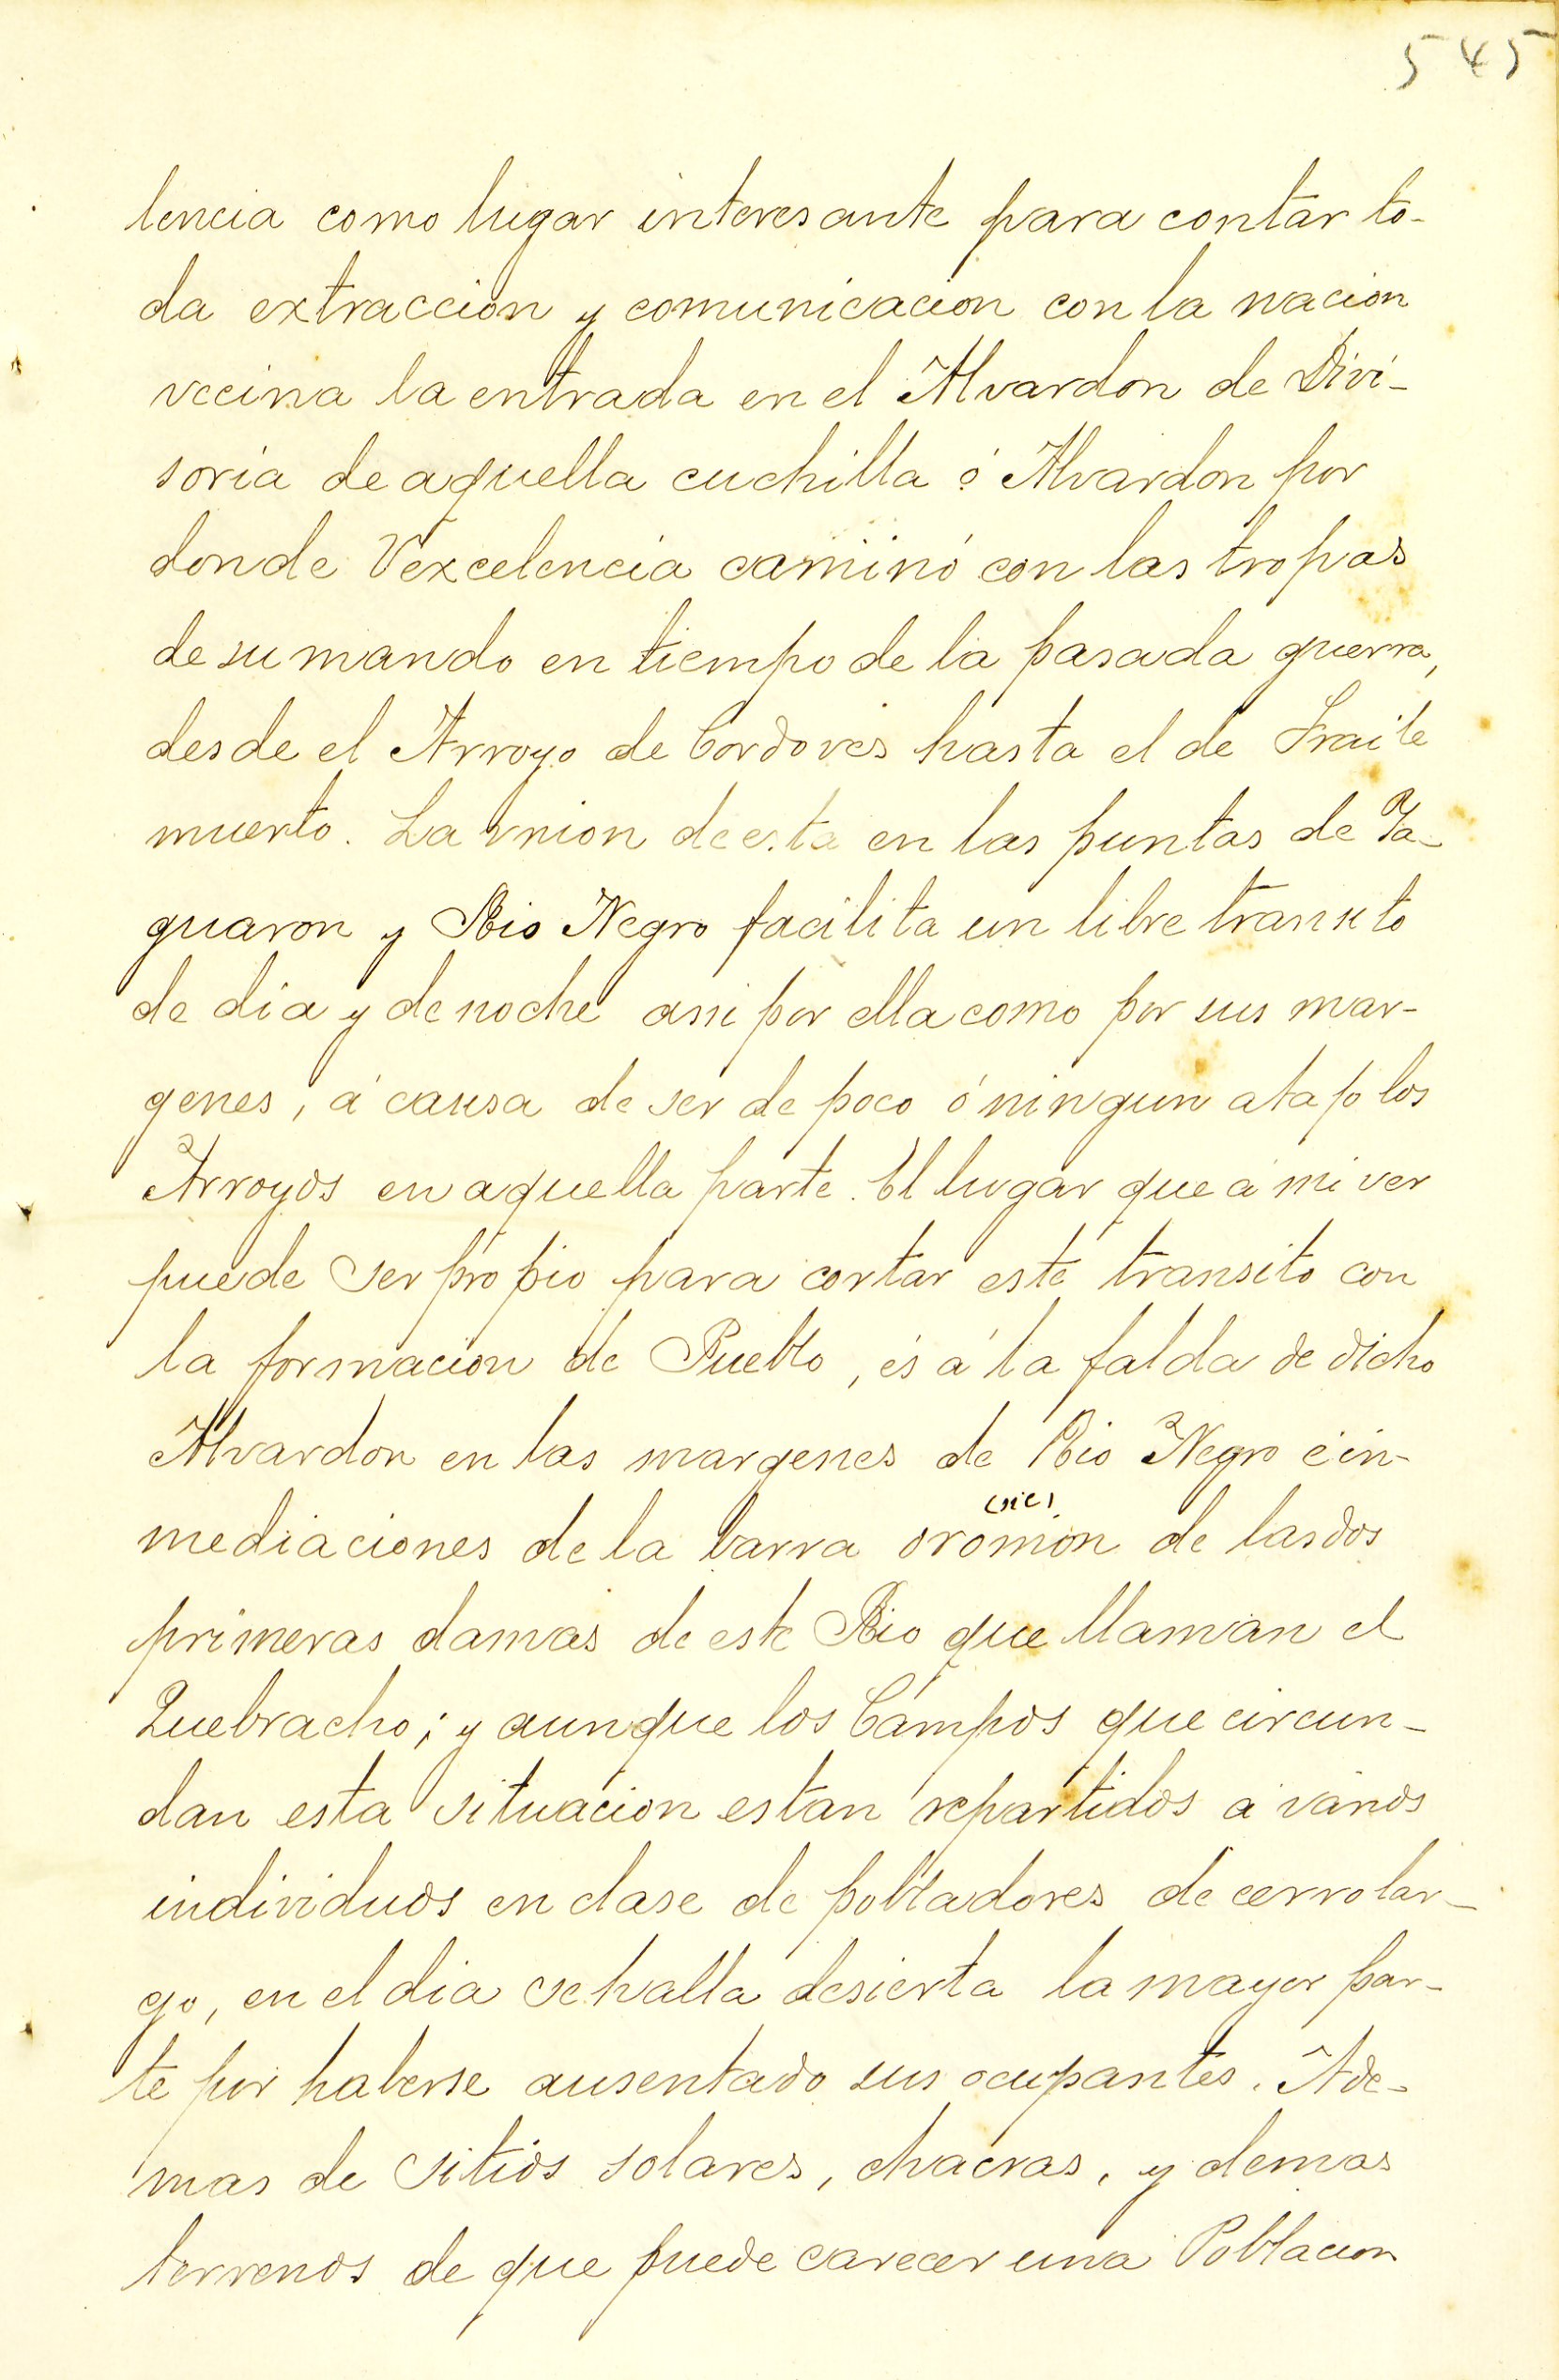 545
lencia como lugar interesante para contar to-
da extraccion y comunicacion con la nacion
vecina la entrada en el Alvardon de Divi-
soria de aquella cuchilla ó Alvardon por
donde Vexcelencia caminó con las tropas
de su mando en tiempo de la pasada guerra,
desde el Arroyo de Cordoves hasta el de Fraile
muerto. La vnion de esta en las puntas de Ya-
guaron y Rio Negro facilita un libre transito
de dia y de noche assi por ella como por sus mar-
genes, á causa de ser de poco ó ningun atajo los
Arroyos en aquella parte. El lugar que á mi ver
puede ser propio para cortar este transito con
la formacion de Pueblo, és á la falda de dicho
Alvardon en las margenes de Rio Negro é in-
(sic)
mediaciones de la barra oromon de las dos
primeras damas de este Rio que llaman el
Quebracho; y aunque los Campos que circun-
dan esta situacion estan repartidos á varios
individuos en clase de pobladores de cerro lar-
go, en el dia se halla desierta la mayor par-
te por haberse ausentado sus ocupantes. Ade-
mas de sitios solares, chacras, y demas
terrenos de que puede carecer una Poblacion